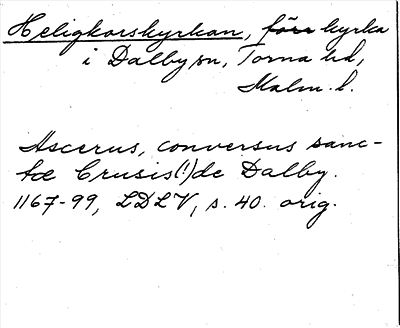 Heligkorskyrkan, kyrka
i Dalby sn, Torna hd,
Malm. l.
Ascerus, conversus sanc-
tæ Crusis(!) de Dalby.
1167-99, LDLV, s. 40. orig.